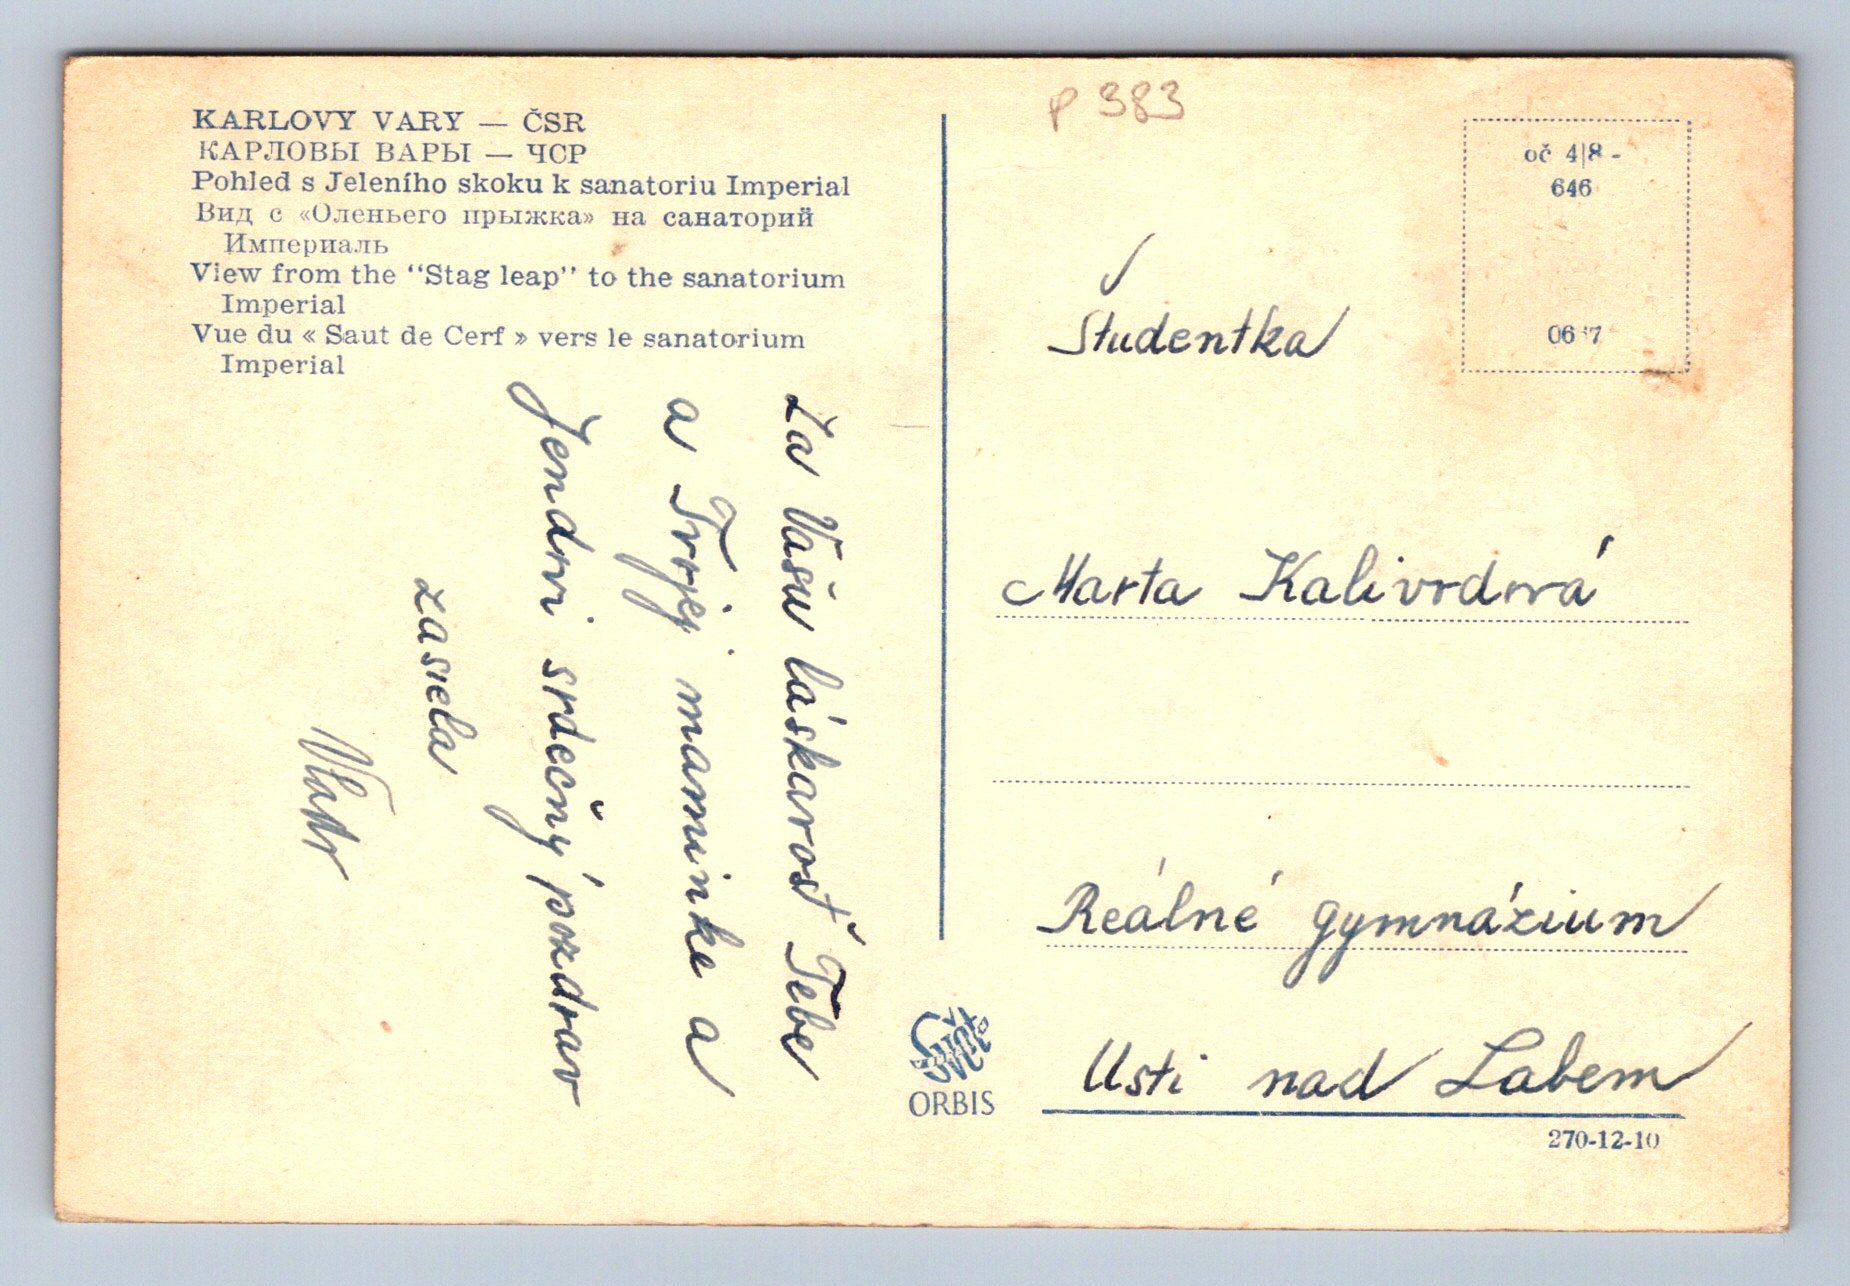 KARLOVY VARY — ČSR
КАРЛОВЫ ВАРЫ — ЧСР
Pohled s Jeleního skoku k sanatoriu Imperial
Вид с «Оленьего прыжка» на санаторий
Империаль
View from the "Stag leap" to the sanatorium
Imperial
Vue du « Saut de Cerf » vers le sanatorium
Imperial
Za Vašu láskavosť Tebe
a Tvojej maminke a
Jendovi srdečný pozdrav
zasiela
P 383
oč 4|8 -
646
Študentka
Marta Kalivodová
Reálné gymnázium
Usti nad Labem
ORBIS
270-12-10